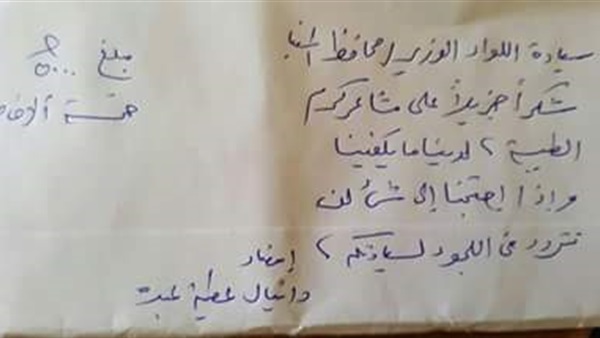 سيادة اللواء الوزير / محافظ المنيا
شكراً جزيلاً على مشاعركم
الطيبة ، لدينا ما يكفينا
وإذا إحتجنا إلى شئ لن
نتردد فى اللجوء لسيادتكم ،
إمضاء
دانيال عطية عبده
مبلغ ٥٠٠٠
خمسة ألاف